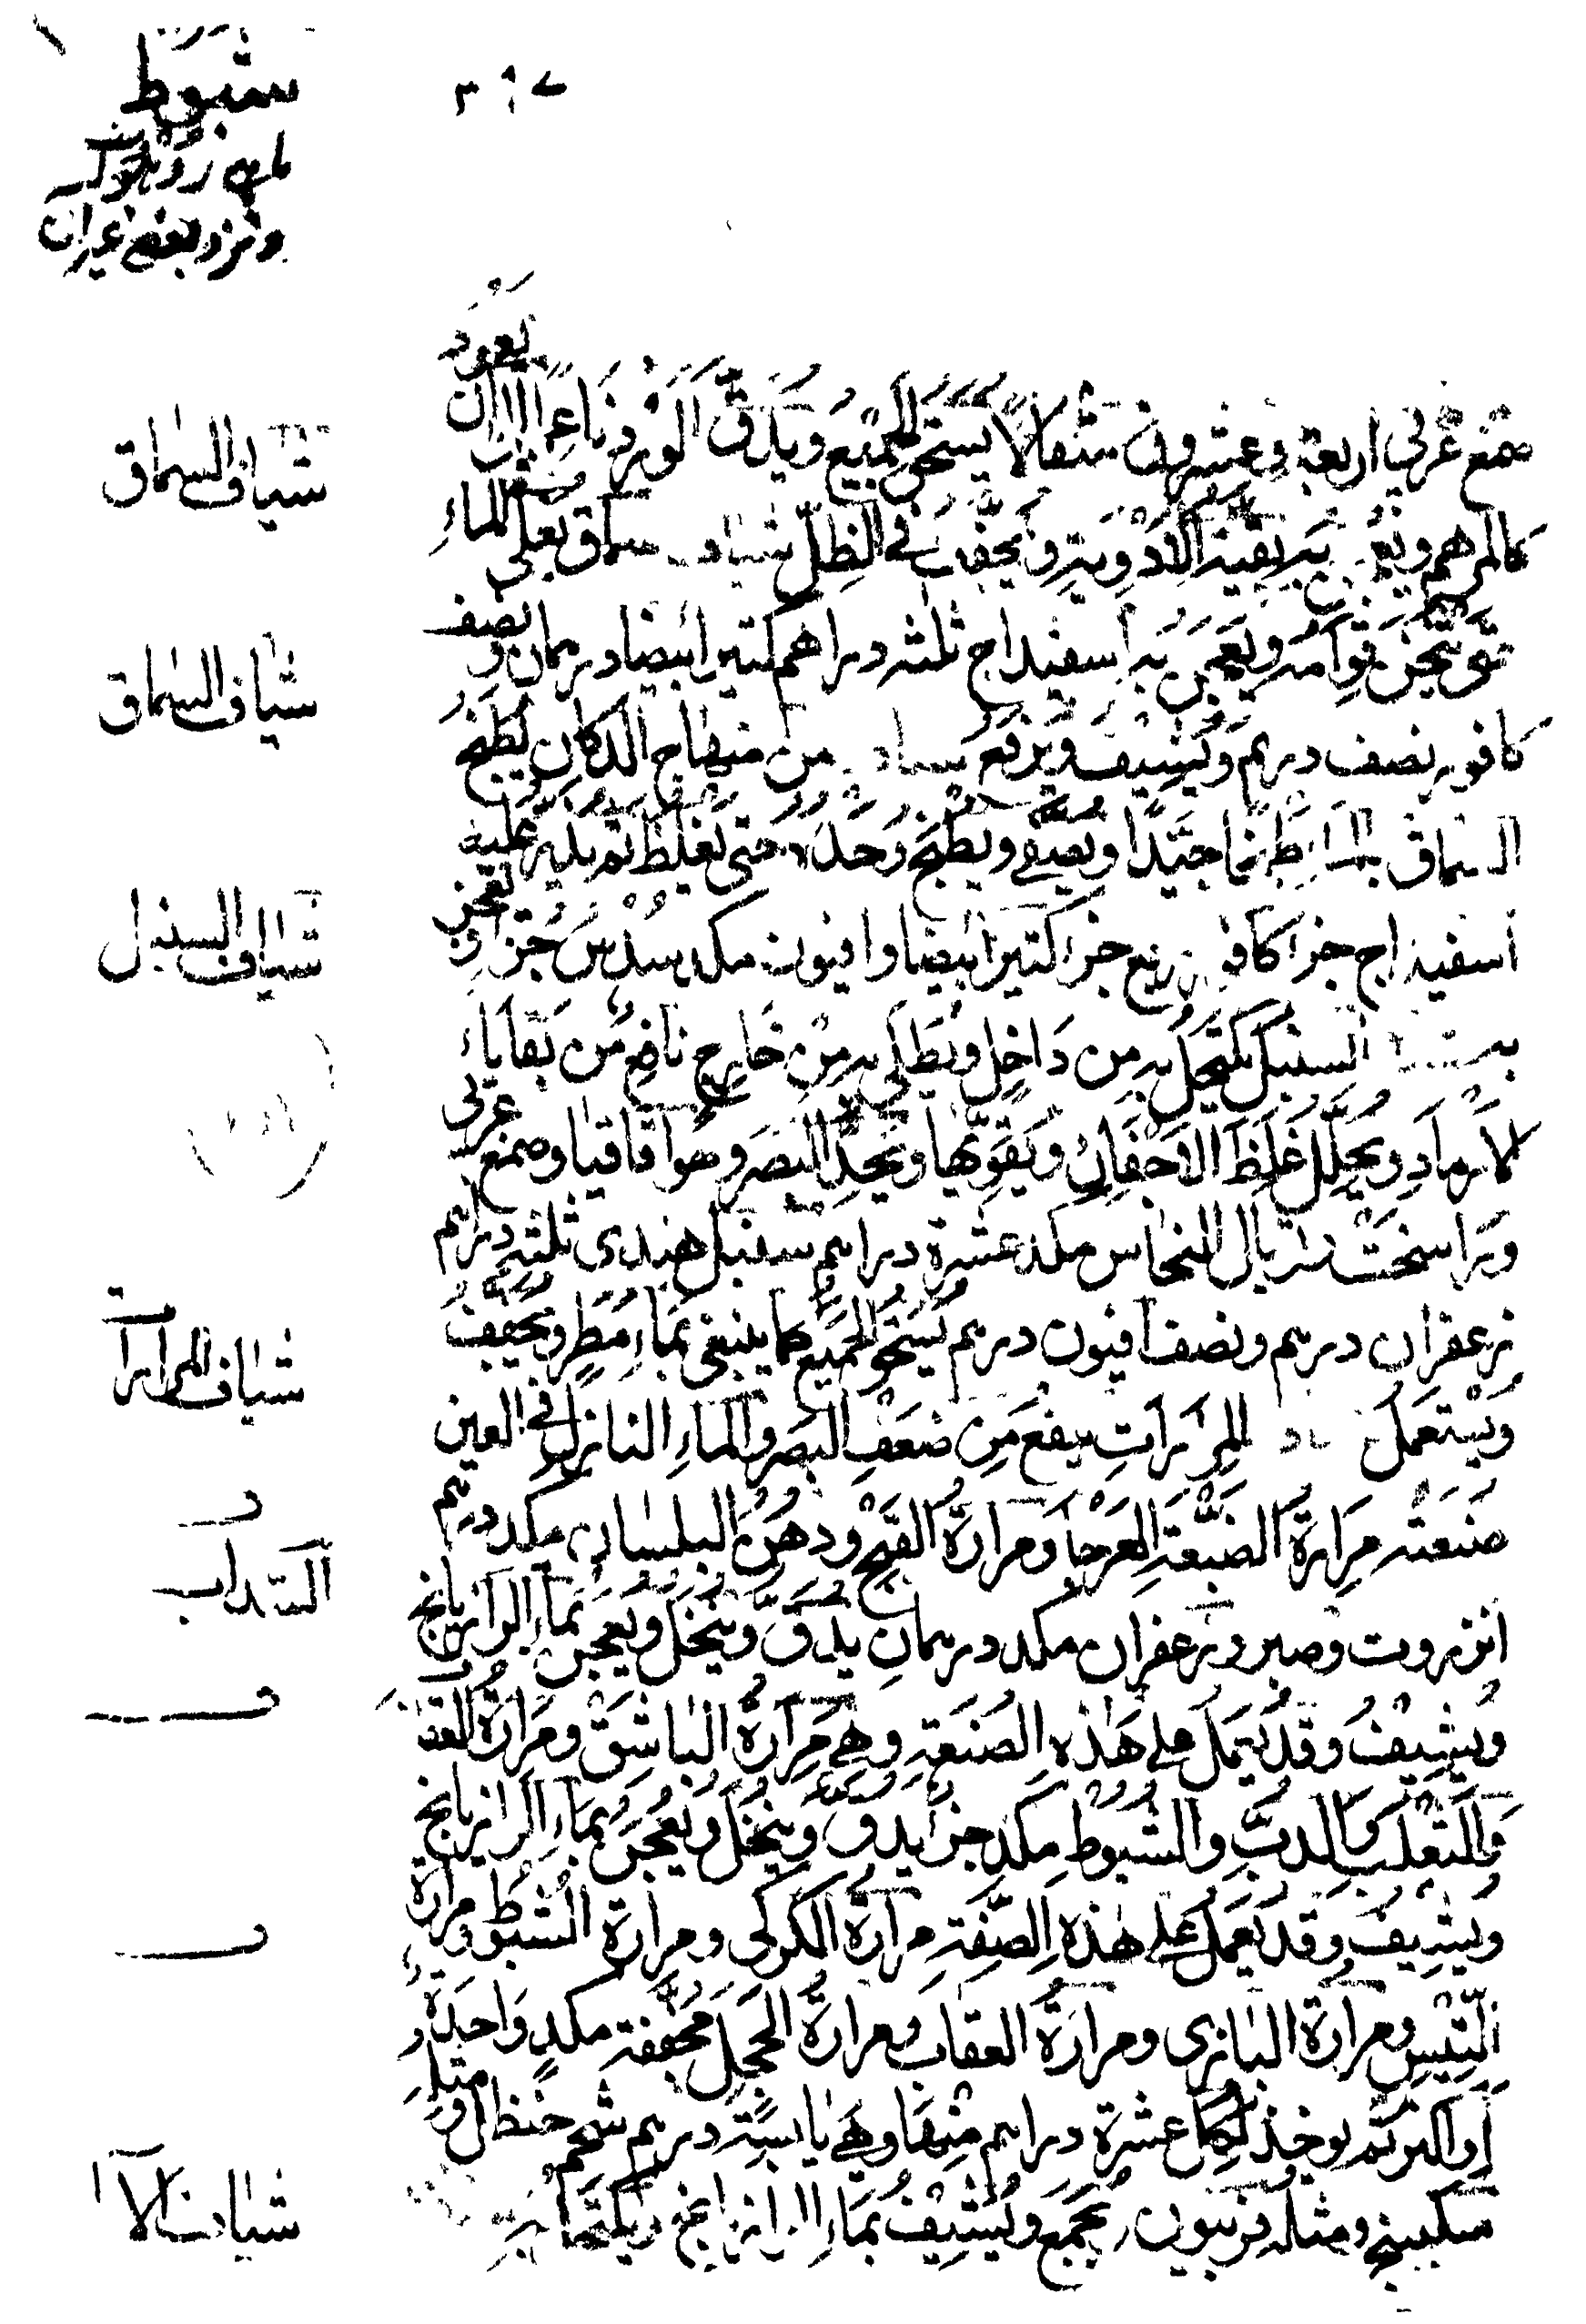 شبوط
ونزد بعضی
٣٩٧
صمغ عربي اربعة وعشرون مثقالًا يُسحق الجميع ويُدَقّ الورد ناعمًا الى ان يعود
كالمرهم ويعجن به بقية الادوية ويجفف في الظل شياف سماق يغلى بالماء
شياف السماق
حتى يثخن قوامه ويعجن به اسفيداج ثلثه دراهم كثيرا بيضا درهمان ونصف
كافور نصف درهم ويشيف ويرفع شياف من منهاج الدكان يُطبخ
شياف السماق
السماق بالماء طبخًا جيّدًا ويصفى ويطبخ وحده حتى يغلظ ثم يذر عليه
اسفيداج جزا كافور ربع جزا كثيرا بيضا وافيون مكد سُدس جزا ويعجن
شياف السنبل
به شياف السنبل يكتحل به من داخل ويطلى به من خارج نافع من بقايا
الارماد ويحلل غلظ الاجفان ويقوّيها ويحدّ البصر وهو اقاقيا وصمغ عربي
وراسخت توبال النحاس مكد عشرة دراهم سنبل هندى ثلثه دراهم
زعفران درهم ونصف افيون درهم يُسحق الجميع كما ينبغى بماء مطر ويجفف
شياف المرارات
ويستعمل شياف المرارات ينفع من ضعف البصر والماء النازل فى العين
صنعته مرارة الضبعة العرجا ومرارة القبج ودهن البلسان مكد درهم
انزروت وصبر وزعفران مكد درهمان يدق وينخل ويعجن بماء الرازيانج
ويشيف وقد يعمل على هذه الصنعة وهى مرارة الباشق ومرارة العقاب
والثعلب والدب والشبوط مكد جزا يدق وينخل ويعجن بماء الرازيانج
ويشيف وقد يعمل على هذه الصفة مرارة الكركى ومرارة الشبوط ومرارة
التيس ومرارة البازى ومرارة العقاب ومرارة الحجل مجففة مكد واحدة
او اكثر ثم يوخذ لكل عشرة دراهم منها وهى يابسة درهم شحم حنظل ومثله
سكبينج ومثله فربيون يجمع ويشيف بماء الرازيانج ويكتحل به